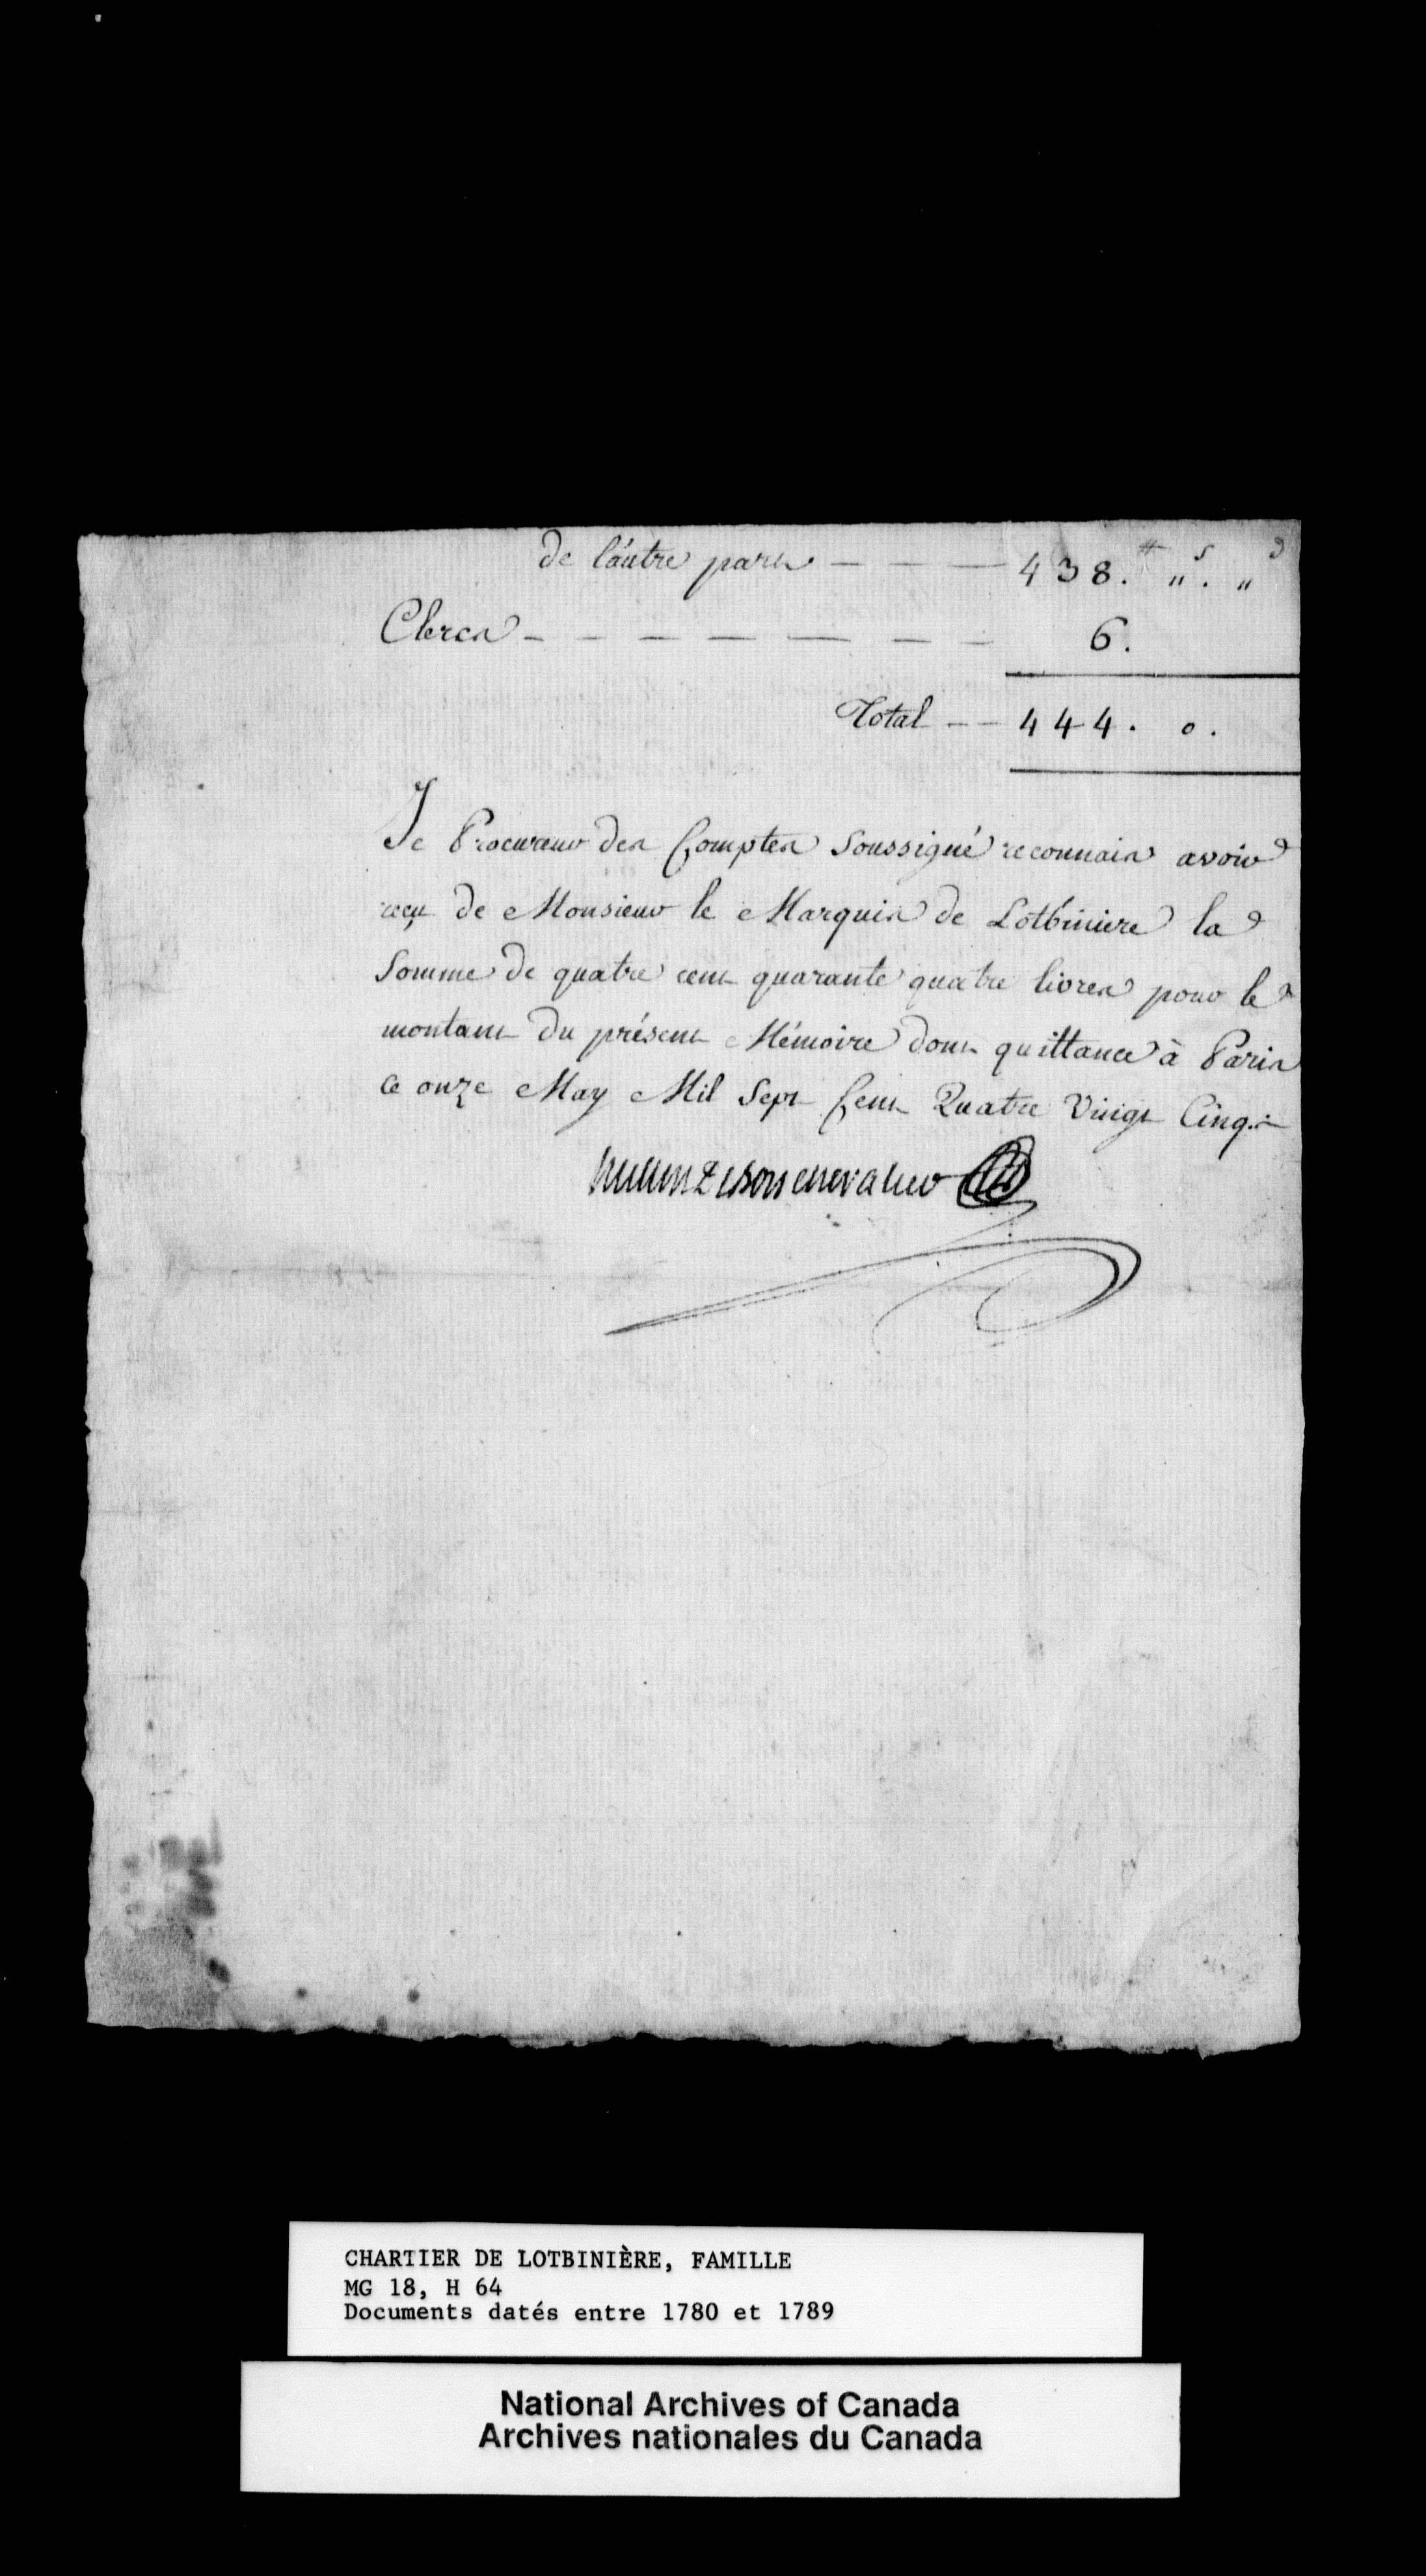 de l'autre part — — — 438.# „s. „d
Clercs - - - - - - - 6.
Total -- 444. 0.
Je Procureur des Comptes Soussigné reconnais avoir
reçu de Monsieur le Marquis de Lotbiniere la
Somme de quatre cent quarante quatre livres pour le
montant du présent Mémoire dont quittance à Paris
ce onze May Mil Sept Cent Quatre Vingt Cinq.
CHARTIER DE LOTBINIÈRE, FAMILLE
MG 18, H 64
Documents datés entre 1780 et 1789
National Archives of Canada
Archives nationales du Canada